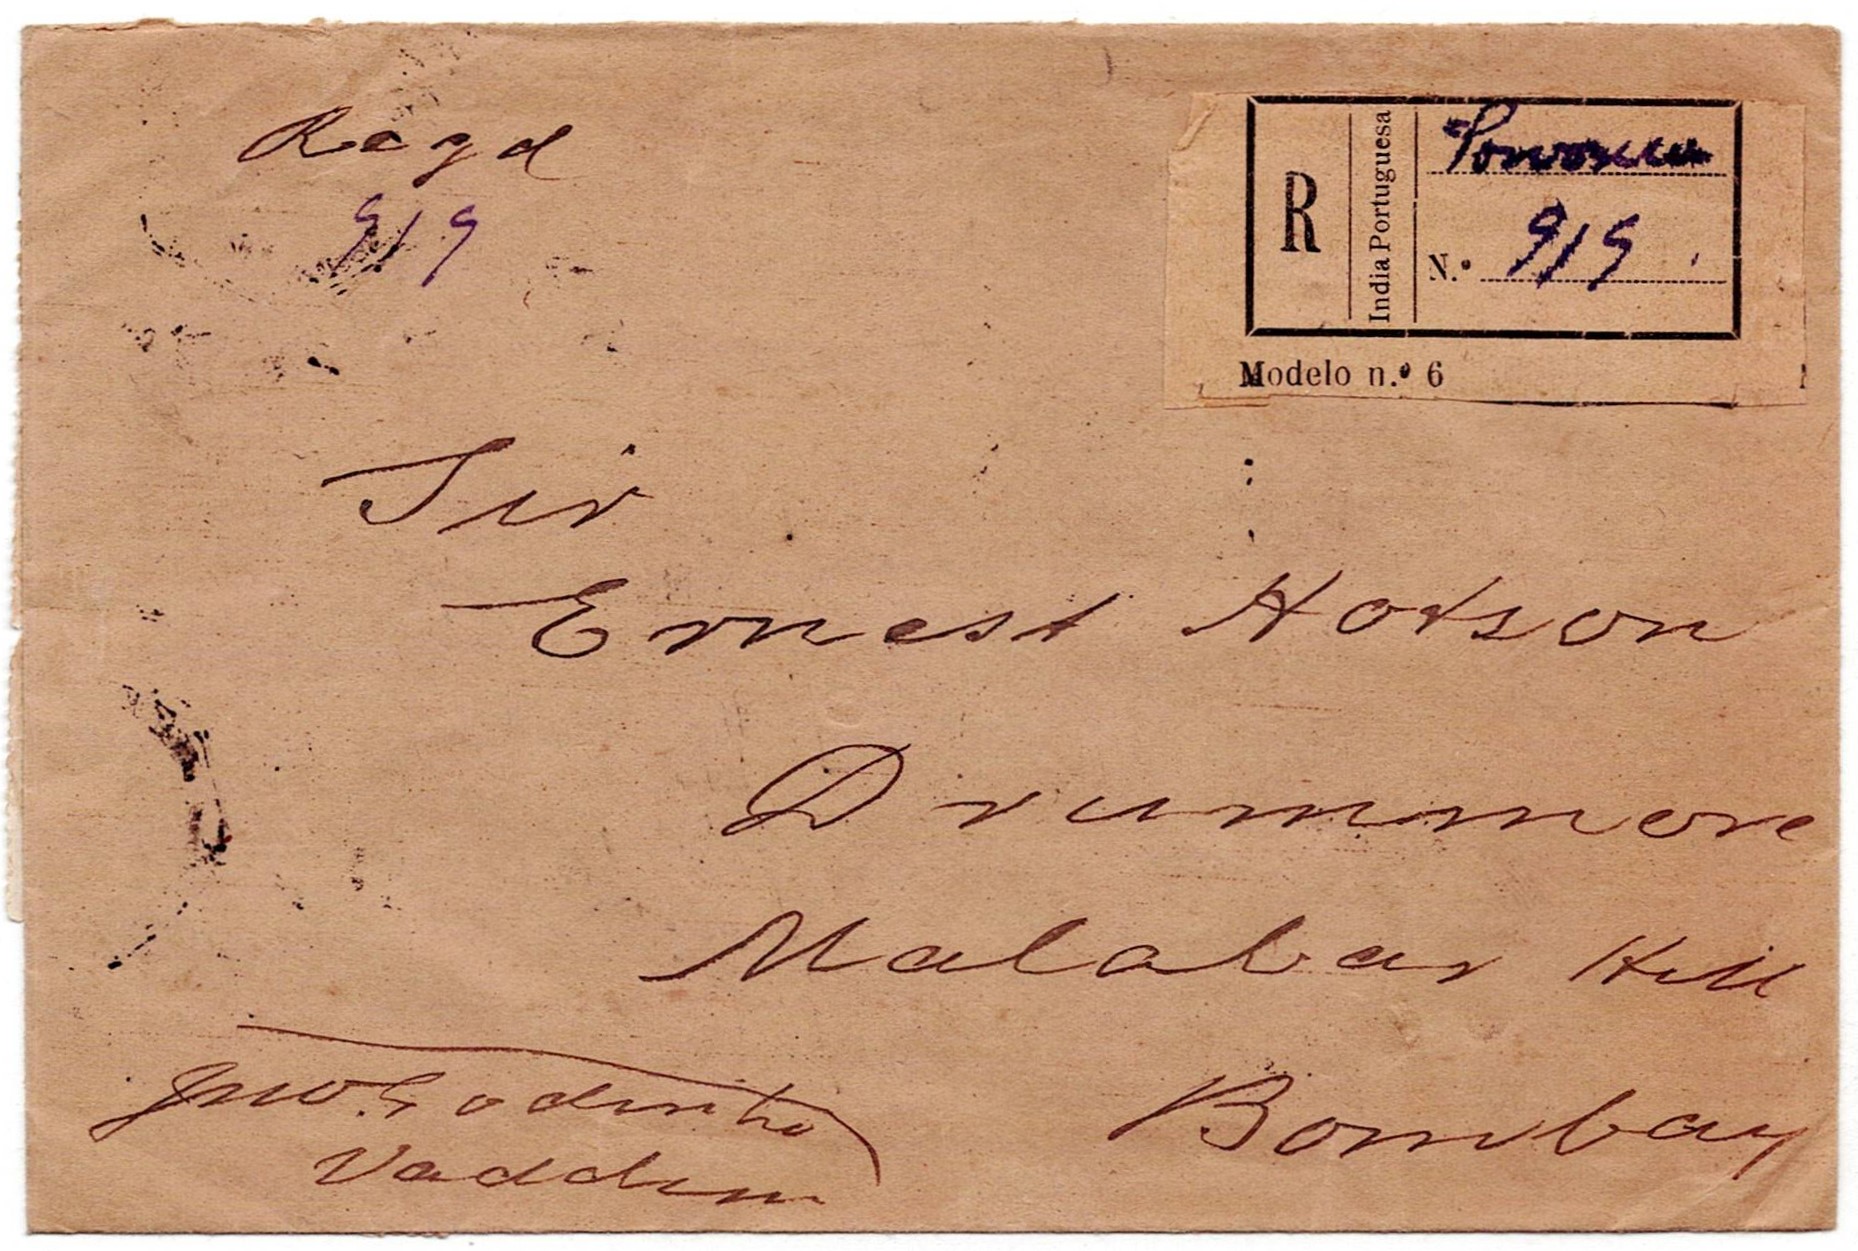 Regd
919
R
India Portuguesa
N.º 919
Modelo n.º 6
Sir
Ernest Hotson
Drummore
Malabar Hill
Bombay
Jno. Godinho
Vaddem